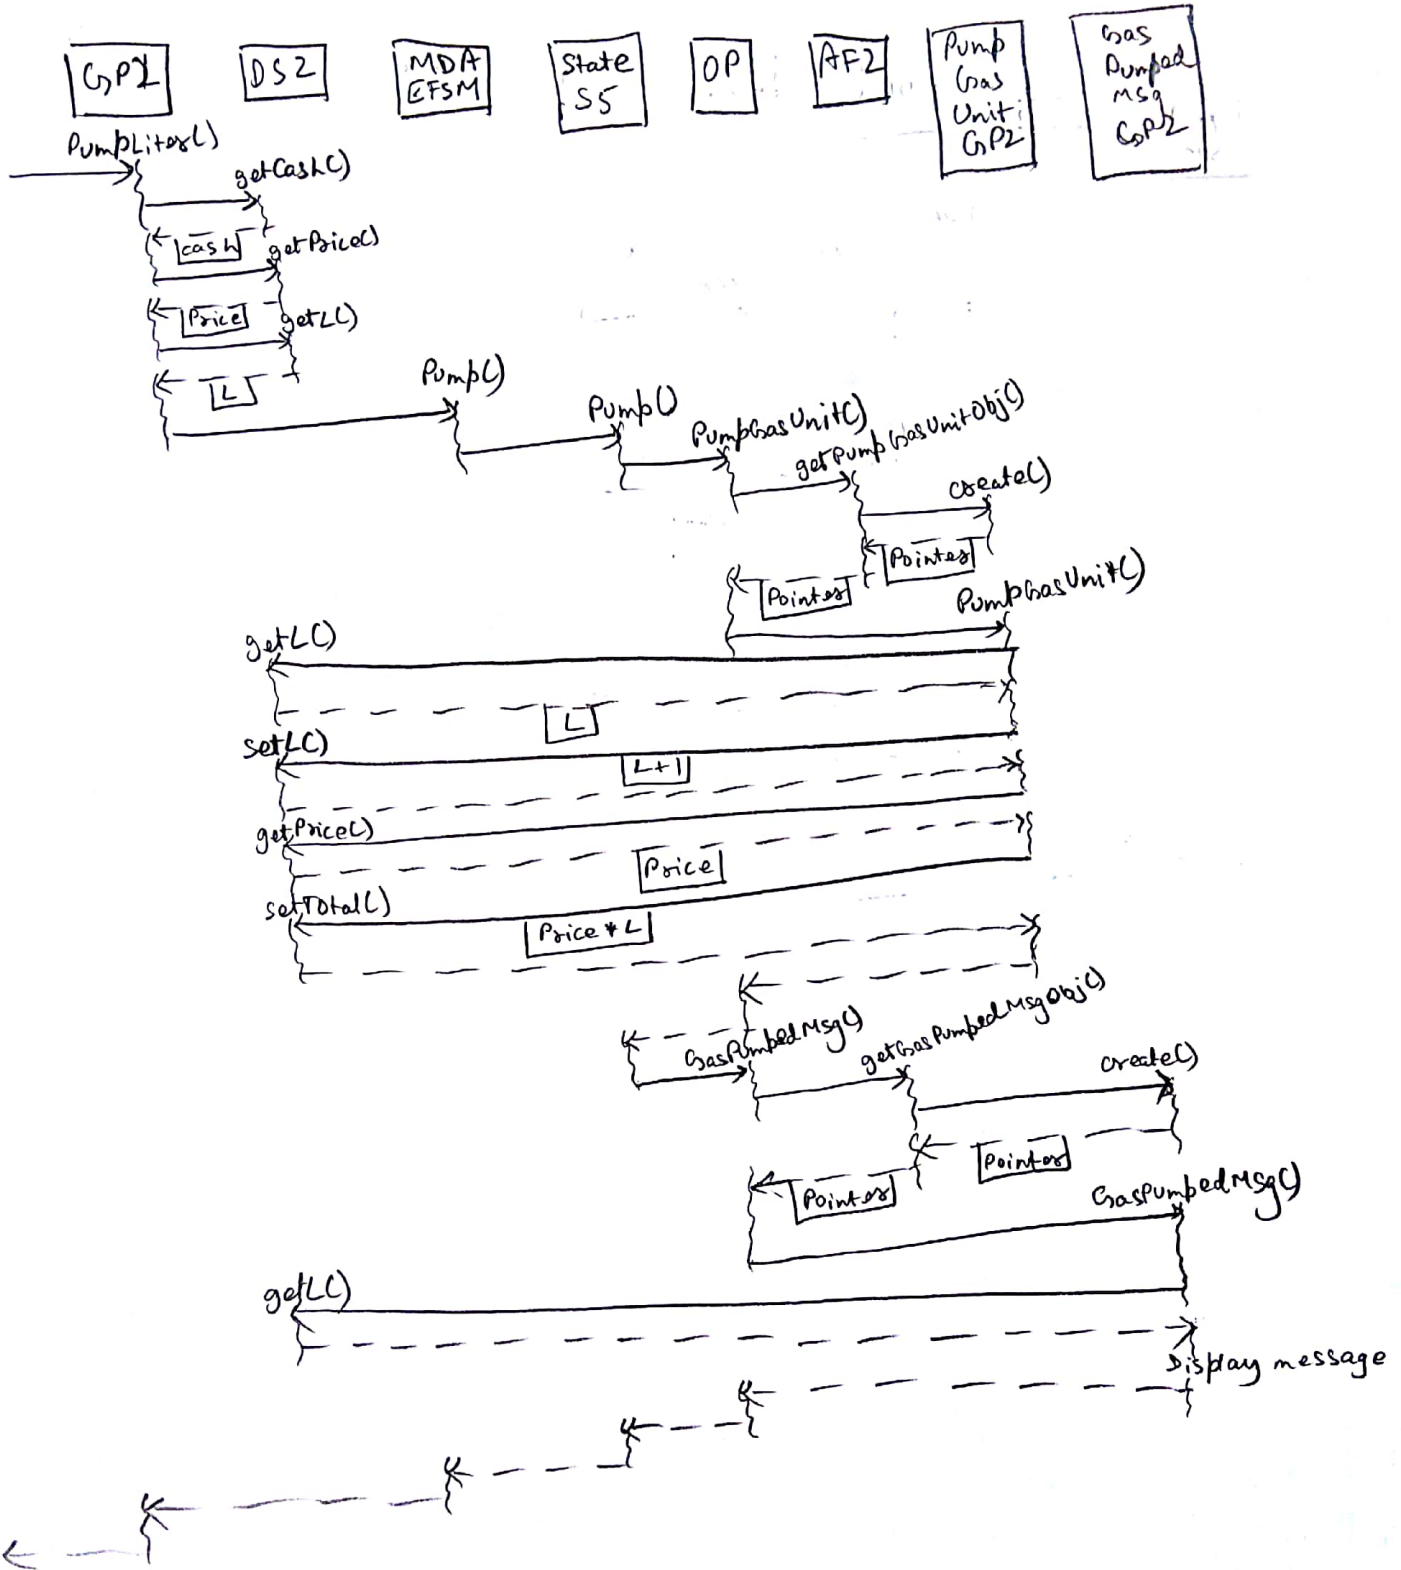 GP2
DS2
MDA
EFSM
State
S5
OP
AF2
Pump
Gas
Unit
GP2
Gas
Pumped
Msg
GP2
PumpLiter()
getCash()
cash
getPrice()
Price
getL()
L
Pump()
Pump()
PumpGasUnit()
getPumpGasUnitObj()
create()
Pointer
Pointer
PumpGasUnit()
getL()
L
setL()
L+1
getPrice()
Price
setTotal()
Price * L
GasPumpedMsg()
getGasPumpedMsgObj()
create()
Pointer
Pointer
GasPumpedMsg()
getL()
Display message